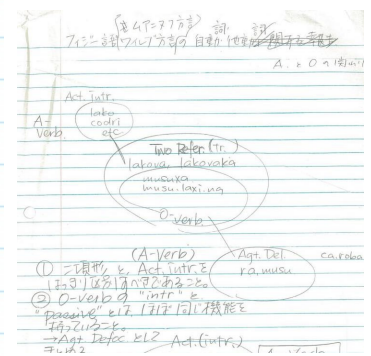 (旧ムアニヌク方言)
フィジー語ワイレブ方言の 自動詞 他動詞
A. と O の
Act. intr.
A-Verb.
lako
codri
etc
Two Refer. (tr.)
lakova, lakovaka
musuxa
musu.laxi.na
O-verb
(A-Verb)
Agt. Del.
ra, musu
ca.roba
① 二項形 と, Act. intr. を
はっきり区別すべきであること。
② O-verb の "intr" と
"passive" とは, ほぼ同じ機能を
持っていること。
→ Agt. Defoc として
まとめる
Act. (intr.)
A-Verb